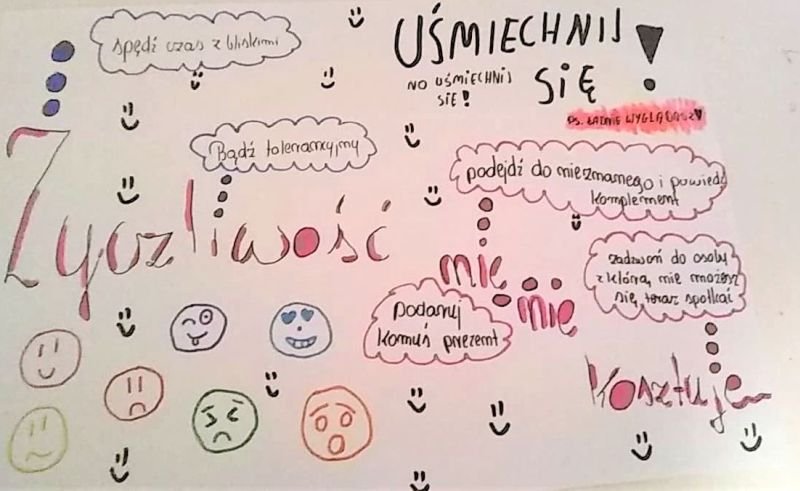 spędź czas z bliskimi
UŚMIECHNIJ
SIĘ!
NO UŚMIECHNIJ
SIĘ!
PS. ŁADNIE WYGLĄDASZ
Bądź tolerancyjny
podejdź do nieznanego i powiedz
komplement
Życzliwość
nic
nie
zadzwoń do osoby
z którą nie możesz
się teraz spotkać
podaruj
komuś prezent
kosztuje